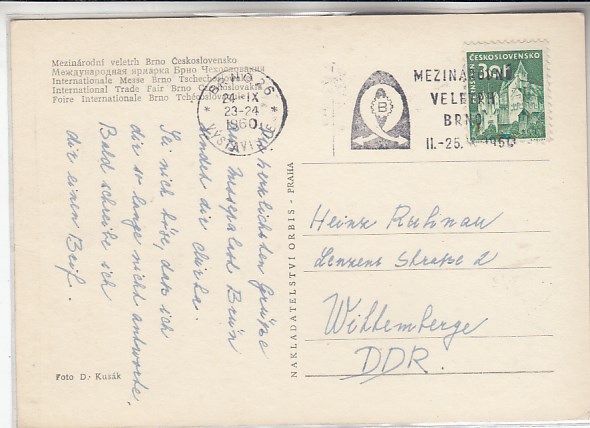 Mezinárodní veletrh Brno Československo
Международная ярмарка Брно Чехословакия
Internationale Messe Brno Tschechoslowakei
International Trade Fair Brno Czechoslovakia
Foire Internationale Brno Tchécoslovaquie
BRNO 26
24.IX
23-24
1960
VÝSTAVIŠTĚ
MEZINÁRODNÍ
VELETRH
BRNO
11.-25. 1960
ČESKOSLOVENSKO
herzlichsten Grüße
aus Messestadt Brün
sendet dir
Sei nich böse, daß ich
dir so lange nicht antworte.
Bald schreibe ich
dir einen Brif.
NAKLADATELSTVÍ ORBIS - PRAHA
Heinz Ruhnau
Lenzens Straße 2
Wittemberge
DDR.
Foto D. Kusák